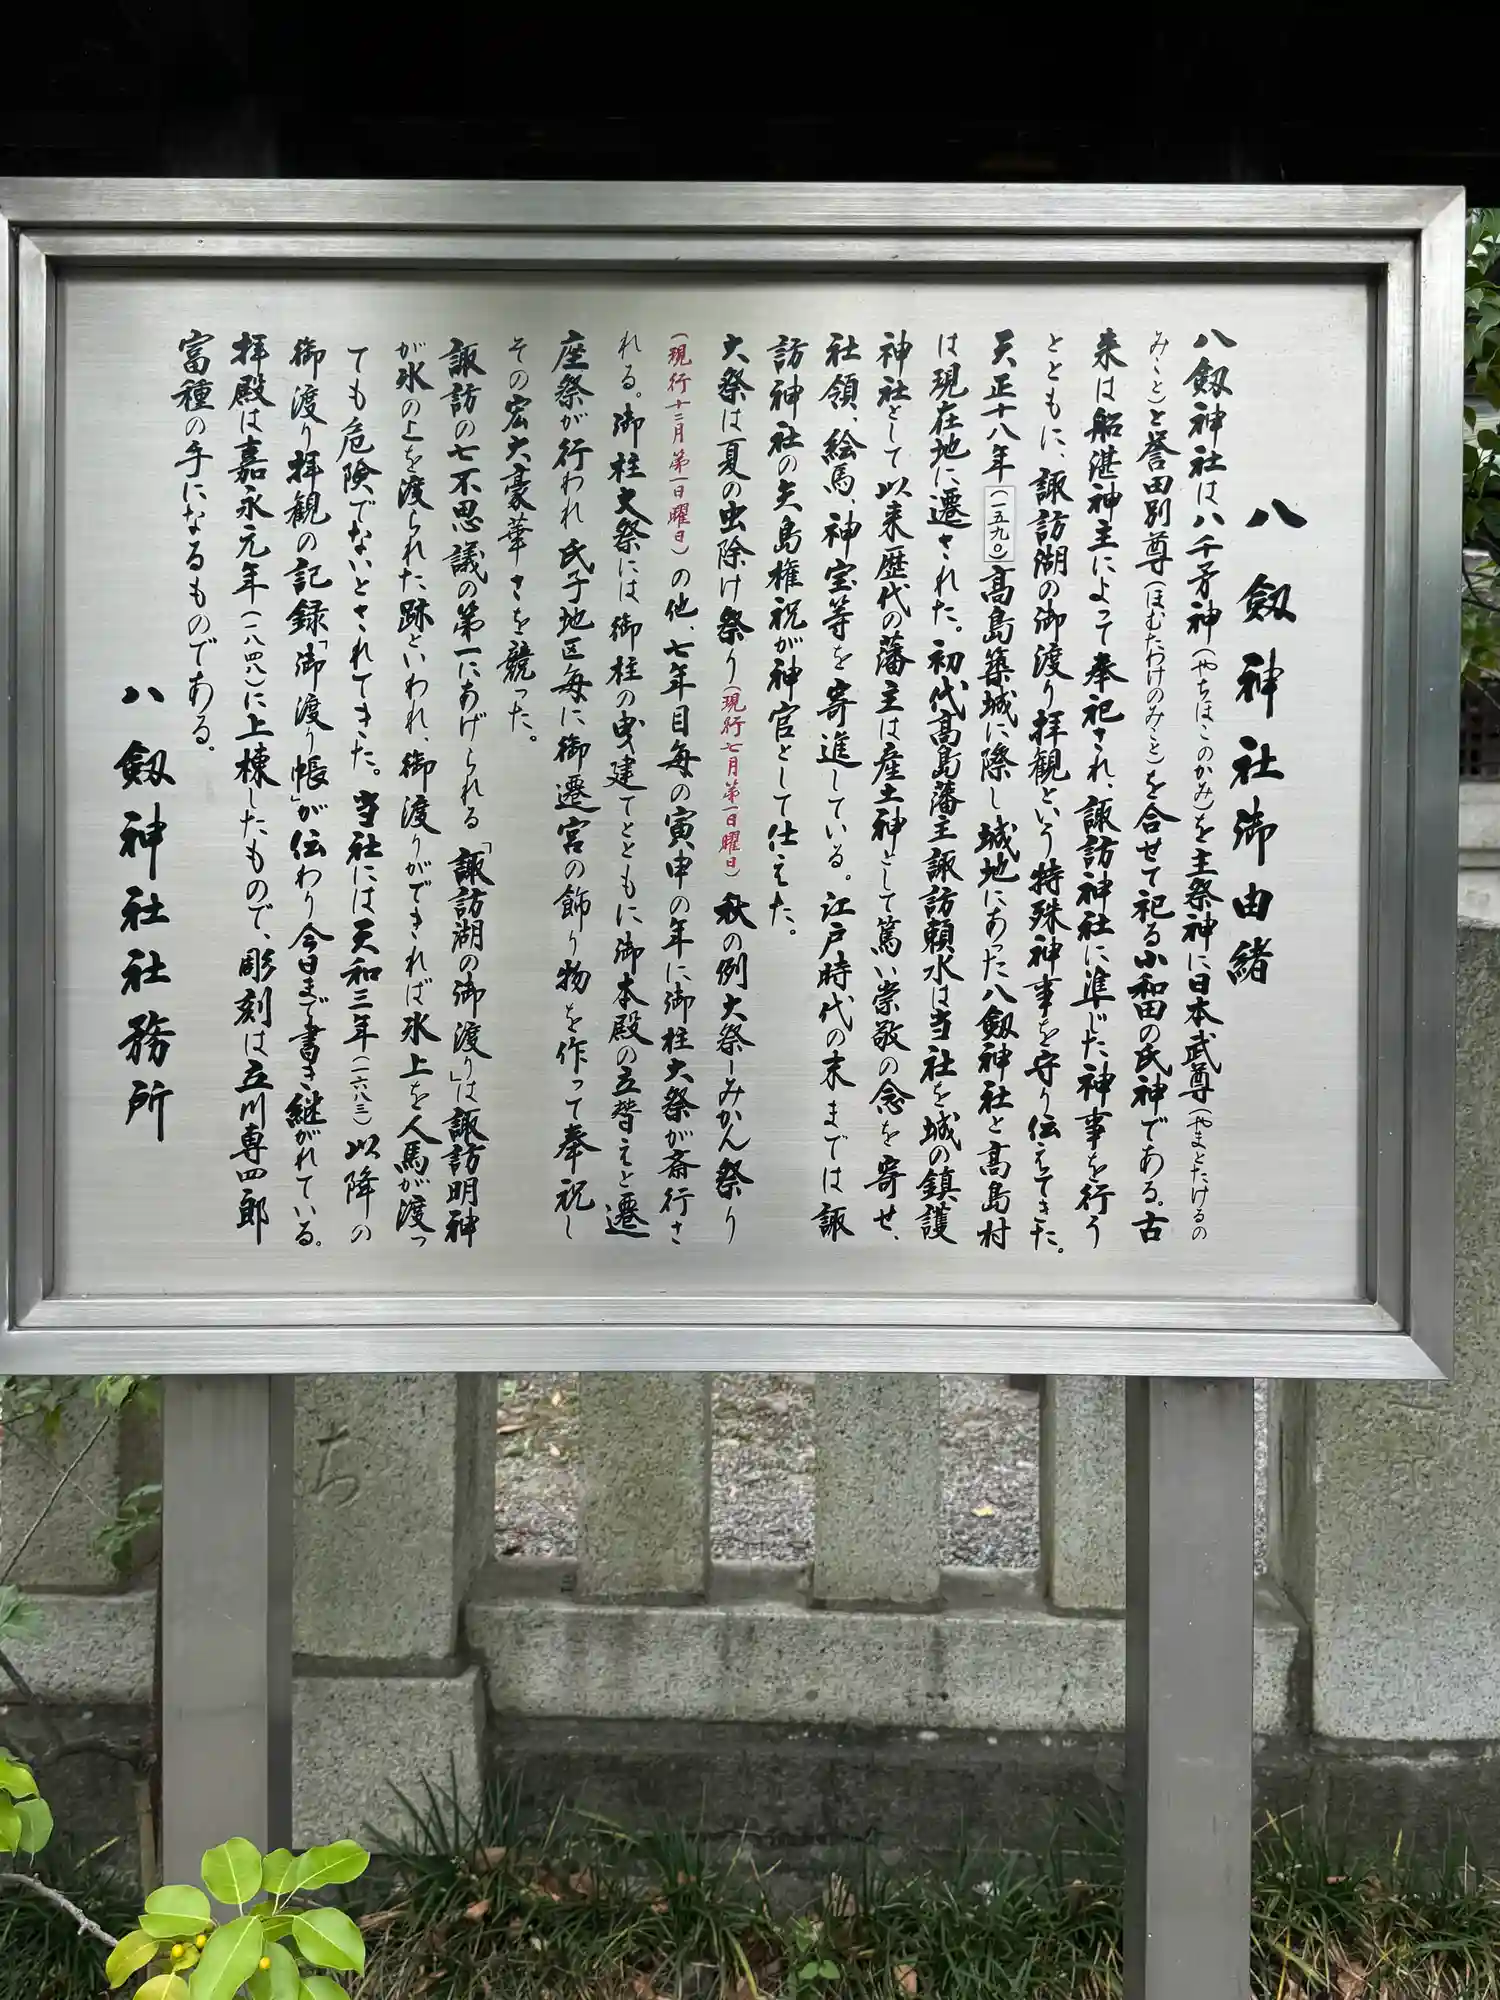 八劔神社御由緒
八劔神社は八千矛神(やちほこのかみ)を主祭神に日本武尊(やまとたけるの
みこと)と誉田別尊(ほむたわけのみこと)を合せて祀る小和田の氏神である。古
来は船湛神主によって奉祀され、諏訪神社に準じた神事を行う
とともに、諏訪湖の御渡り拝観という特殊神事を守り伝えてきた。
天正十八年(一五九〇)高島築城に際し城地にあった八劔神社と高島村
は現在地に遷された。初代高島藩主諏訪頼水は当社を城の鎮護
神社として以来歴代の藩主は産土神として篤い崇敬の念を寄せ、
社領、絵馬、神宝等を寄進している。江戸時代の末までは諏
訪神社の矢島権祝が神官として仕えた。
大祭は夏の虫除け祭り(現行七月第一日曜日)秋の例大祭―みかん祭り
(現行十二月第一日曜日)の他、七年目毎の寅申の年に御柱大祭が斎行さ
れる。御柱大祭には御柱の曳建てとともに御本殿の立替えと遷
座祭が行われ氏子地区毎に御遷宮の飾り物を作って奉祝し
その宏大豪華さを競った。
諏訪の七不思議の第一にあげられる「諏訪湖の御渡り」は諏訪明神
が氷の上を渡られた跡といわれ、御渡りができれば氷上を人馬が渡っ
ても危険でないとされてきた。当社には天和三年(一六八三)以降の
御渡り拝観の記録「御渡り帳」が伝わり今日まで書き継がれている。
拝殿は嘉永元年(一八四八)に上棟したもので、彫刻は立川専四郎
富種の手になるものである。
八劔神社社務所
ち